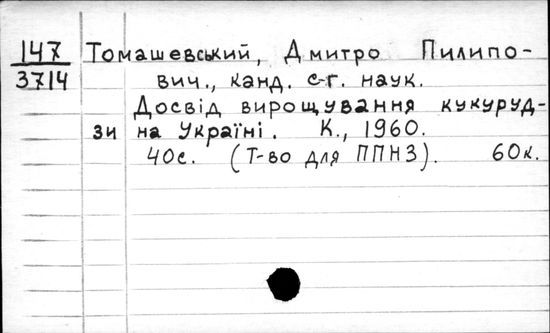 147 Томашевський, Дмитро Пилипо-
3714 вич., канд. с-г. наук.
Досвід вирощування кукуруд-
зи на Україні. К., 1960.
40с. (Т-во для ППНЗ). 60к.